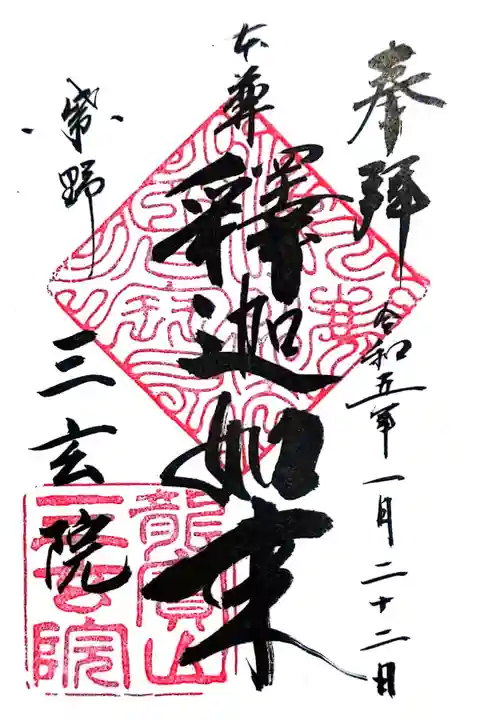 奉拝
令和五年一月二十二日
本尊
釋迦如来
紫野
三玄院
龍寳山
三玄院